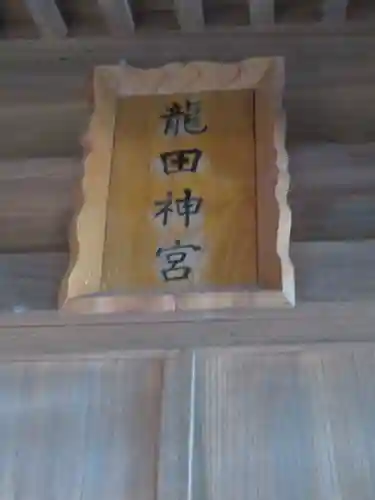 龍田神宮